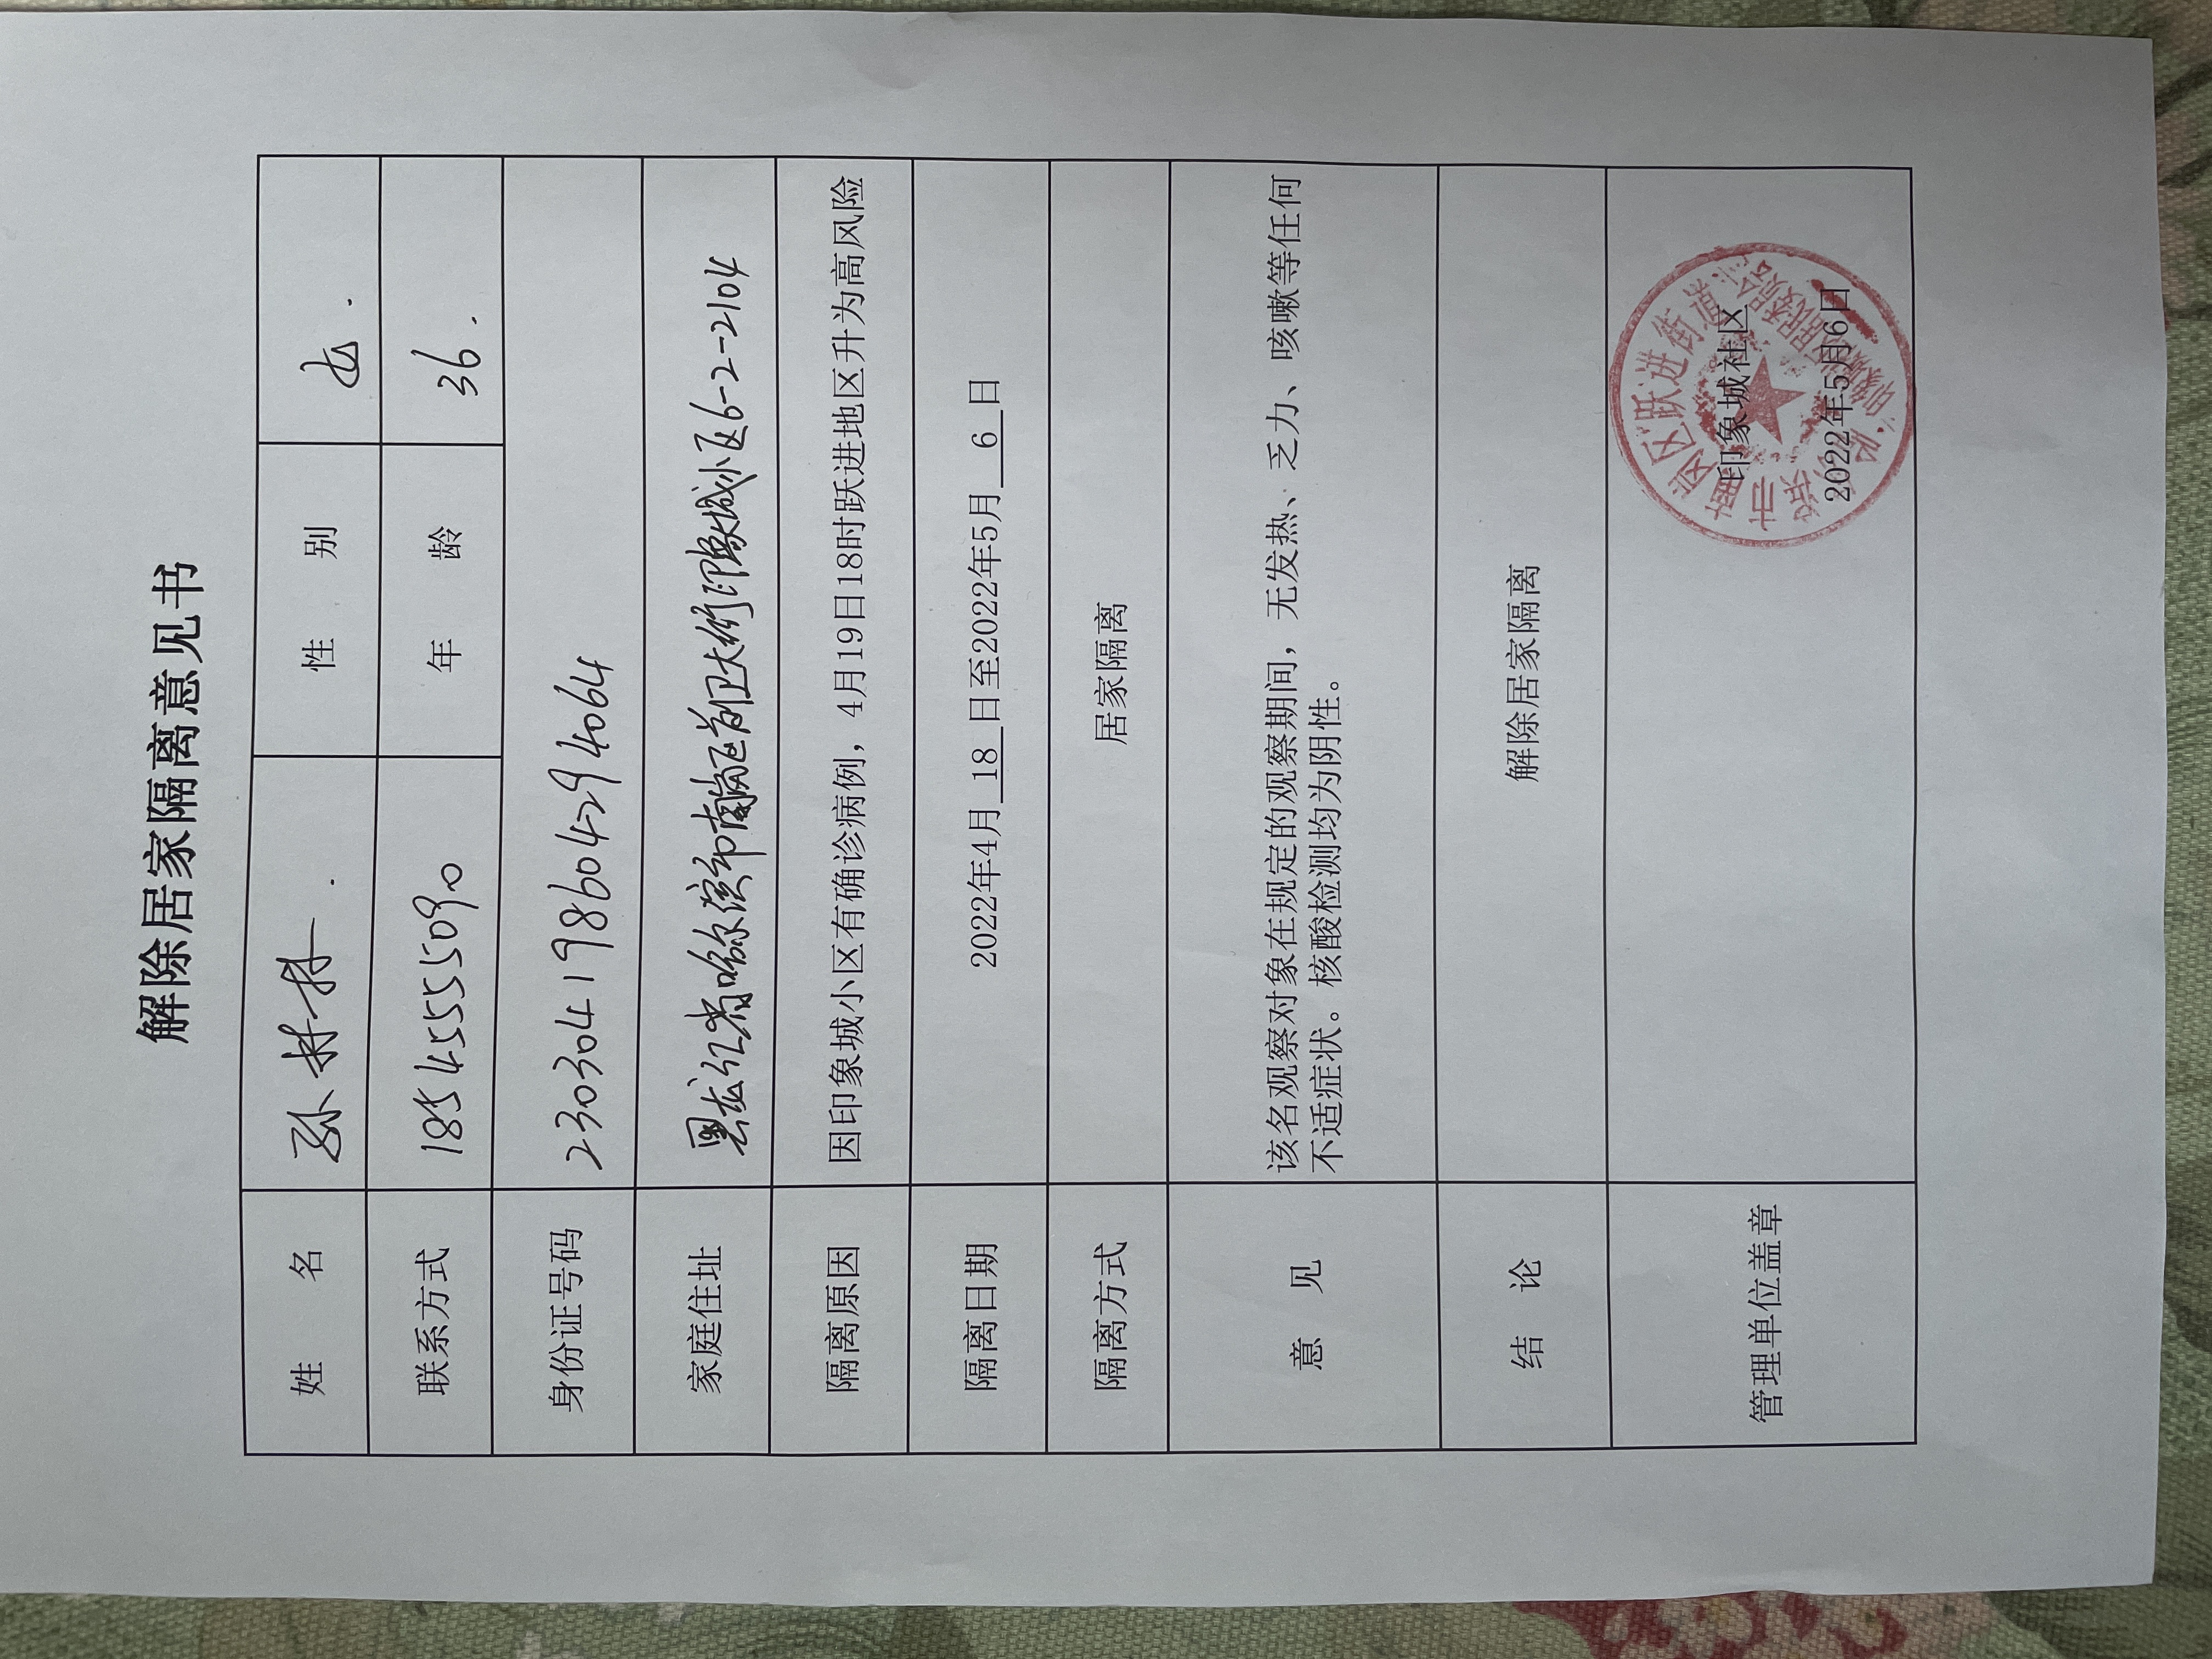 解除居家隔离意见书
姓 名 孙 性 别 女.
联系方式 18545555090 年 龄 36.
身份证号码 230304198604294064
家庭住址 黑龙江省哈尔滨市南岗区前卫大街印象城小区6-2-2104
隔离原因 因印象城小区有确诊病例，4月19日18时跃进地区升为高风险
隔离日期 2022年4月 18 日至2022年5月 6 日
隔离方式 居家隔离
意 见 该名观察对象在规定的观察期间，无发热、乏力、咳嗽等任何
不适症状。核酸检测均为阴性。
结 论 解除居家隔离
管理单位盖章
印象城社区
2022年5月6日